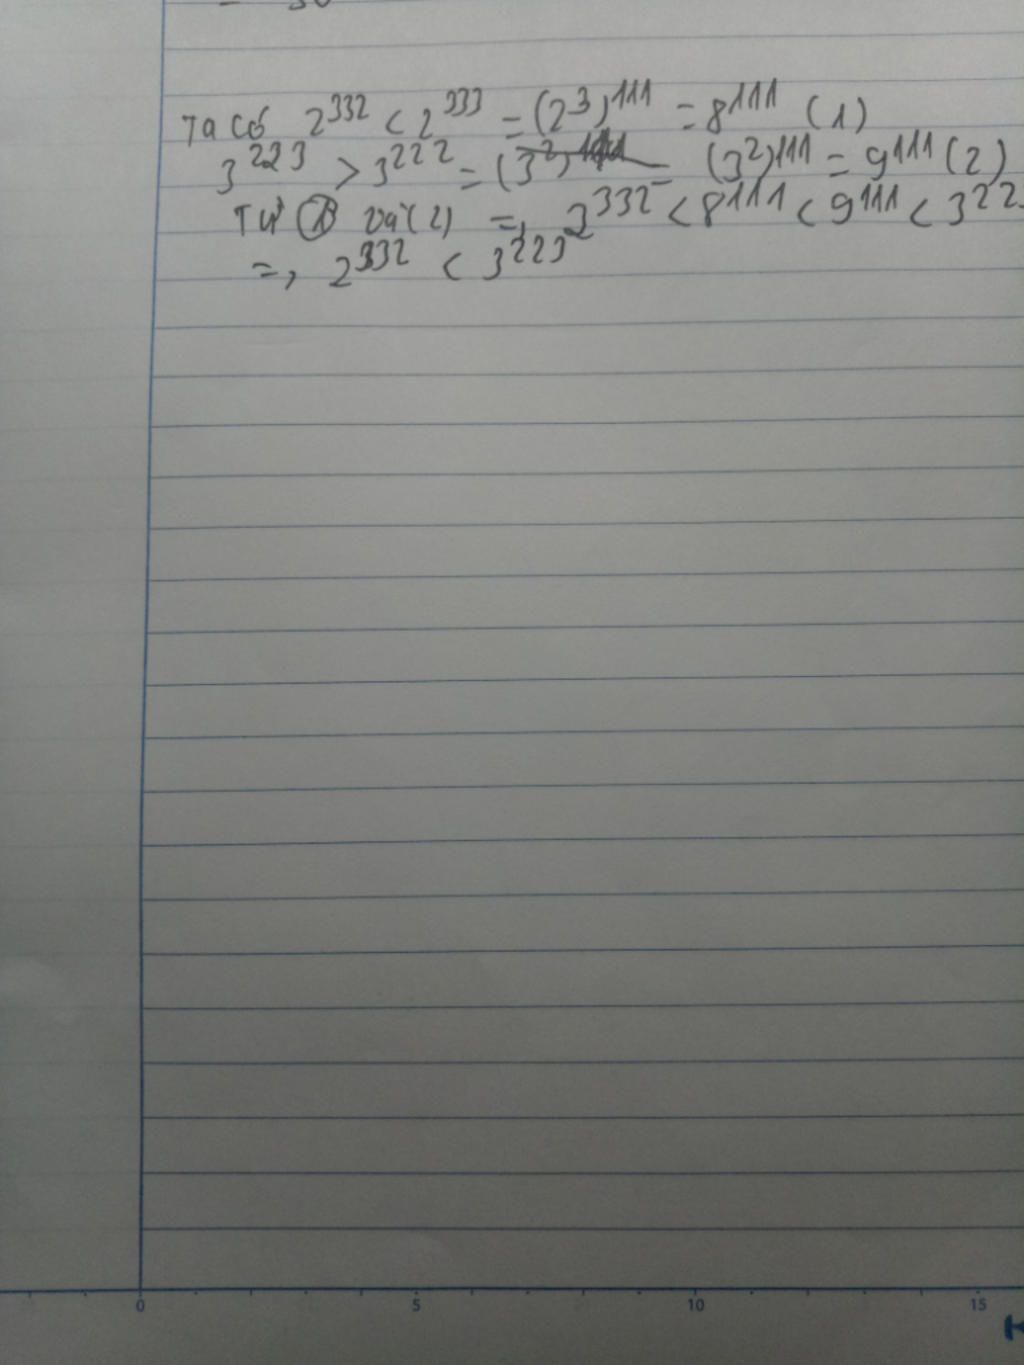 Ta có 2^332 < 2^333 = (2^3)^111 = 8^111 (1)
3^223 > 3^222 = (3^2)^111 = 9^111 (2)
Từ (1) và (2) => 2^332 < 8^111 < 9^111 < 3^22
=> 2^332 < 3^223
0 5 10 15